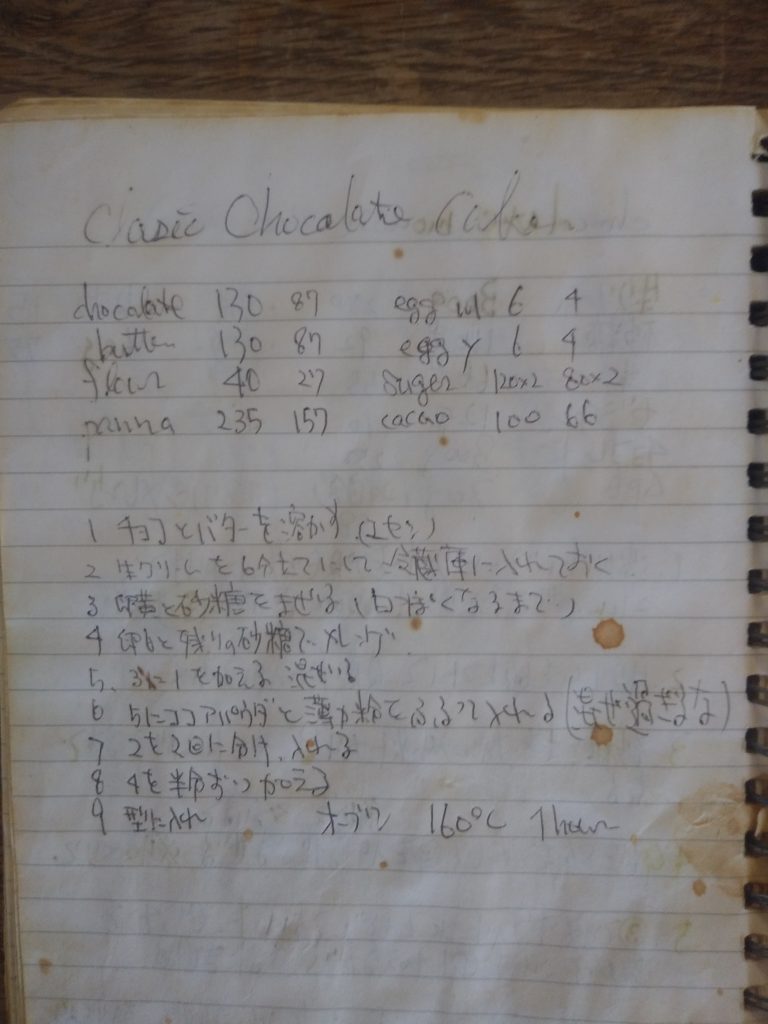 Clasic Chocolate Cake
chocolate 130 87 egg w 6 4
butter 130 87 egg y 6 4
flour 40 27 suger 120×2 80×2
panna 235 157 cacao 100 66
1 チョコとバターを溶かす (ユセン)
2 生クリームを6分立てにして 冷蔵庫に入れておく
3 卵黄と砂糖をまぜる (白っぽくなるまで)
4 卵白と残りの砂糖でメレンゲ
5. 3に1を加える 混ぜる
6 5にココアパウダと薄力粉をふるって入れる (混ぜ過ぎるな)
7 2を2回に分け、入れる
8 4を半分ずつ加える
9 型に入れ オーブン 160℃ 1 hour